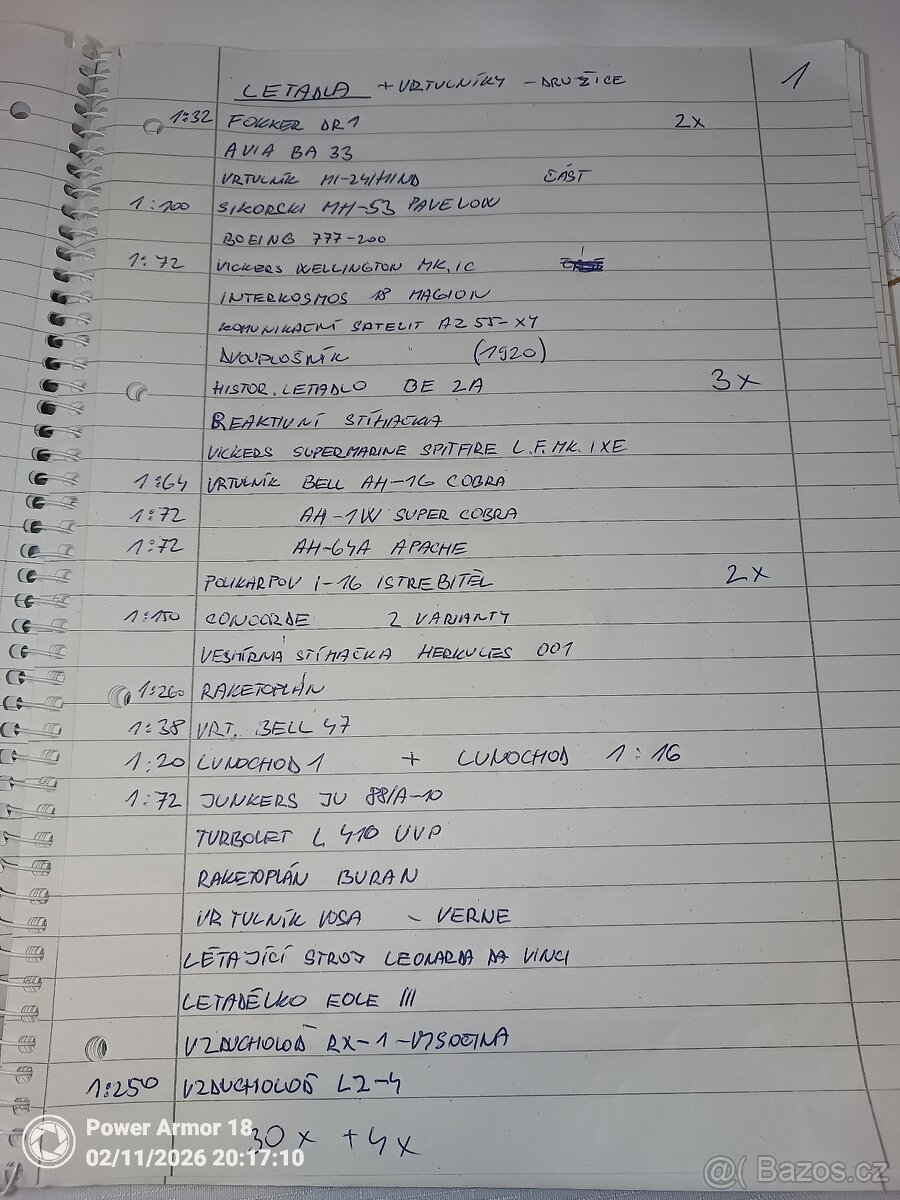 1
LETADLA + VRTULNÍKY - DRUŽICE
1:32 FOKKER DR1 2x
AVIA BA 33
VRTULNÍK MI-24/HIND ČÁST
1:100 SIKORSKI MH-53 PAVELOW
BOEING 777-200
1:72 VICKERS WELLINGTON MK.IC
INTERKOSMOS 18 MAGION
KOMUNIKAČNÍ SATELIT AZ55-X4
DVOUPLOŠNÍK (1920)
HISTOR. LETADLO BE 2A 3x
REAKTIVNÍ STÍHAČKA
VICKERS SUPERMARINE SPITFIRE L.F.MK.IXE
1:64 VRTULNÍK BELL AH-1G COBRA
1:72 AH-1W SUPER COBRA
1:72 AH-64A APACHE
POLIKARPOV I-16 ISTREBITĚL 2x
1:150 CONCORDE 2 VARIANTY
VESMÍRNÁ STÍHAČKA HERKULES 001
1:260 RAKETOPLÁN
1:38 VRT. BELL 47
1:20 LUNOCHOD 1 + LUNOCHOD 1:16
1:72 JUNKERS JU 88/A-10
TURBOLET L 410 UVP
RAKETOPLÁN BURAN
VRTULNÍK VOSA - VERNE
LÉTAJÍCÍ STROJ LEONARDA DA VINCI
LETADÉLKO EOLE III
VZDUCHOLOĎ RX-1-VYSOČINA
1:250 VZDUCHOLOĎ LZ-4
30x + 4x
Power Armor 18
02/11/2026 20:17:10
@( Bazos.cz